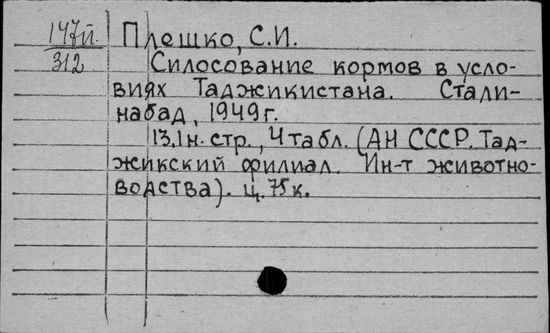 147й.
312
Плешко, С.И.
Силосование кормов в усло-
виях Таджикистана. Стали-
набад, 1949г.
13.1н.стр., 4 табл. (АН СССР. Тад-
жикский филиал. Ин-т животно-
водства). ц. 75к.